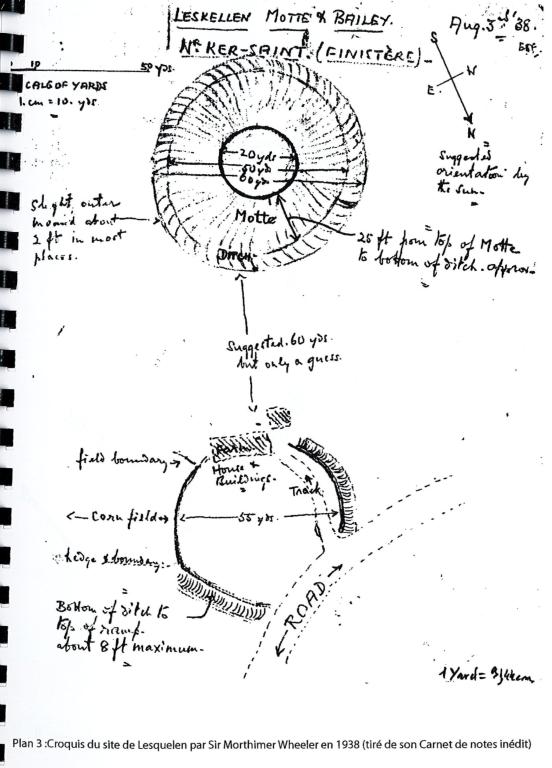 LESKELLEN MOTTE & BAILEY.
Nr KER-SAINT. (FINISTÈRE)
Aug. 3rd '38.
10
50 yds.
SCALE OF YARDS
1 cm = 10. yds.
S
W
E
N
Suggested
orientation by
the sun.
20 yds
60 yds
80 yds
Motte
Ditch
Slight outer
mound about
2 ft in most
places.
25 ft from top of Motte
to bottom of ditch. approx.
Suggested. 60 yds.
but only a guess.
field boundary
Farm
House &
Buildings.
Track
← Corn field →
55 yds.
hedge & boundary.
ROAD
Bottom of ditch to
top of ramp.
about 8 ft maximum.
1 Yard =
Plan 3 :Croquis du site de Lesquelen par Sir Morthimer Wheeler en 1938 (tiré de son Carnet de notes inédit)